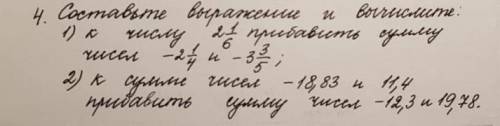 4. Составьте выражение и вычислите:
1) к числу 2 1/6 прибавить сумму
чисел -2 1/4 и -3 3/5;
2) к сумме чисел -18,83 и 11,4
прибавить сумму чисел -12,3 и 19,78.